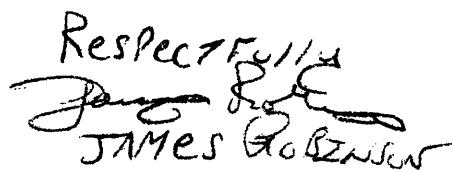 Respectfully
James Robinson
JAMES ROBINSON